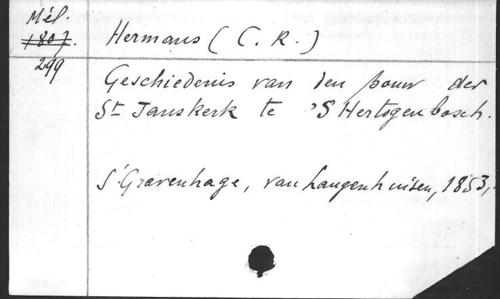 Mél.
1807.
299
Hermans (C. R.)
Geschiedenis van den bouw der
St Janskerk te 'S Hertogenbosch.
S'Gravenhage, van Langenhuisen, 1853,